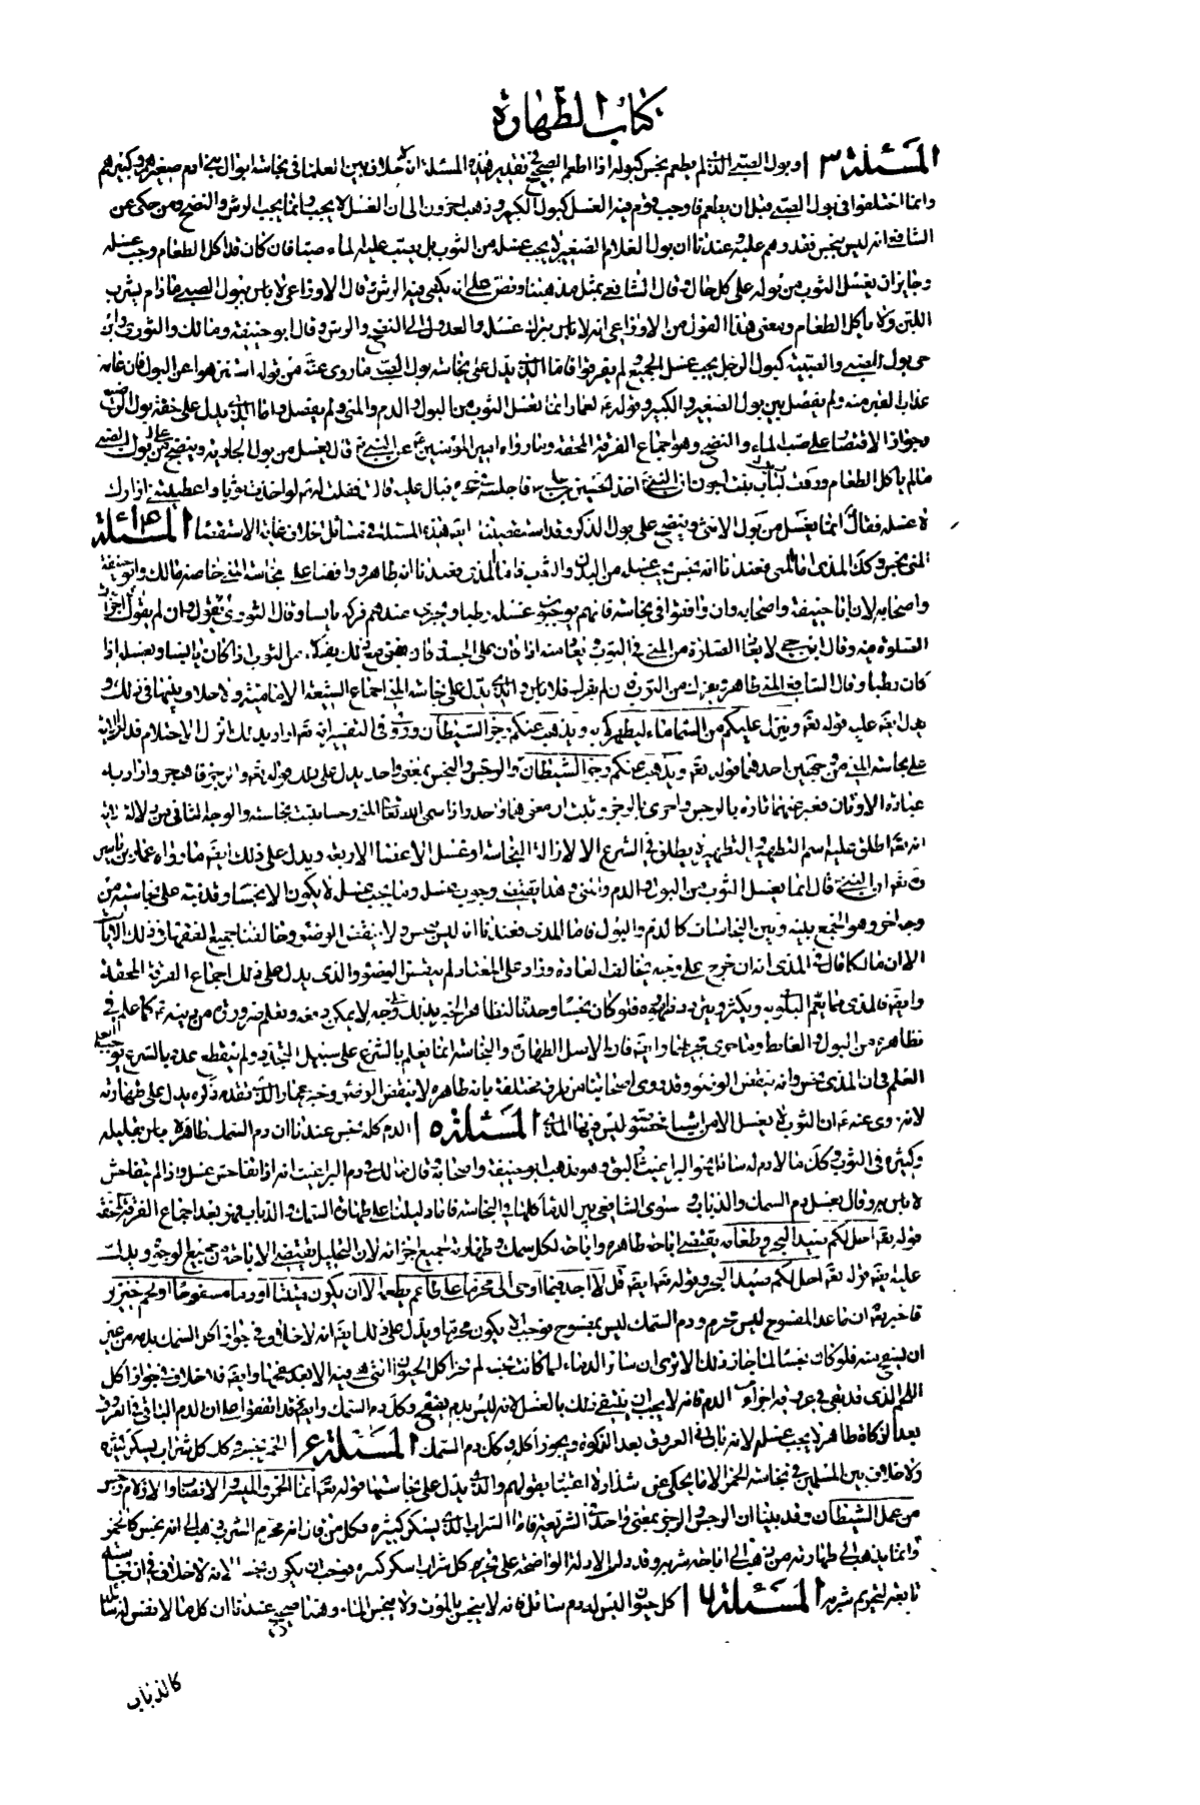 كتاب الطهارة
المسئلة ١٣ وبول الصبي الذي لم يطعم نجس كبوله اذا اطعم الصحيح في تقدير هذه المسئلة ان لا خلاف بين العلماء في نجاسة ابوال بني ادم صغيرهم وكبيرهم
وانما اختلفوا في بول الصبي قبل ان يطعم فاوجب قوم فيه الغسل كبول الكبير وذهب اخرون الى ان الغسل لا يجب وانما يجب الرش والنضح ومن حكى عن
الشافعي انه ليس بنجس فقد وهم عليه وعندنا ان بول الغلام الصغير لا يجب غسله من الثوب بل يصب عليه الماء صبا فان كان قد اكل الطعام وجب غسله
وجايز ان يغسل الثوب من بوله على كل حال وقال الشافعي بمثل مذهبنا ونص على انه يكفي فيه الرش وقال الاوزاعي لا باس ببول الصبي ما دام يشرب
اللبن ولا ياكل الطعام ومعنى هذا القول من الاوزاعي انه لا باس بترك غسله والعدول الى النضح والرش وقال ابو حنيفة ومالك والثوري وابن
حي بول الصبي والصبية كبول الرجل يجب غسل الجميع لم يفرقوا فاما الذي يدل على نجاسة بول الصبي ما روي عنه من قوله استنزهوا عن البول فان عامة
عذاب القبر منه ولم يفصل بين بول الصغير والكبير وقوله لعمار انما يغسل الثوب من البول والدم والمني ولم يفصل واما الذي يدل على خفة بول الرضيع
وجواز الاقتصار على صب الماء والنضح وهو اجماع الفرقة المحقة وما رواه امير المؤمنين عن النبي قال يغسل من بول الجارية وينضح على بول الصبي
ما لم ياكل الطعام وروت لبابة بنت الجون ان النبي اخذ الحسين بن علي فاجلسه في حجره فبال عليه قالت فقلت له لو اخذت ثوبا واعطيتني ازارك
لاغسله فقال انما يغسل من بول الانثى وينضح على بول الذكر وقد استقصينا هذه المسئلة في مسائل خلاف غاية الاستقصا المسئلة ١٤
المني نجس وكذلك المذي اما المني فعندنا انه نجس يجب غسله من البدن والثوب فاما المذي فعندنا انه طاهر ووافقنا على نجاسة المني خاصة مالك وابو حنيفة
واصحابه لان ابا حنيفة واصحابه وان وافقوا في نجاسته فانهم يوجبون غسله رطبا ويجزي عندهم فركه يابسا وقال الثوري يقول وان لم يفرك اجزأت
الصلوة فيه وقال ابن حي لا يعاد الصلاة من المني في الثوب
كان رطبا وقال الشافعي المني طاهر ويفرك من الثوب فان لم يفرك فلا باس والذي يدل على نجاسة المني اجماع الشيعة الامامية ولا خلاف بينها في ذلك و
يدل ايضا عليه قوله تعالى وينزل عليكم من السماء ماء ليطهركم به ويذهب عنكم رجز الشيطان وروي في التفسير انه اراد بذلك اثر الاحتلام فدلت الاية
على نجاسة المني من وجهين احدهما قوله ويذهب عنكم رجز الشيطان والرجس والنجس بمعنى واحد يدل على ذلك قوله والرجز فاهجر واراد به
عبادة الاوثان فعبر عنهما تارة بالرجس واخرى بالرجز وثبت ان معنى هما واحد واذا سمى الله تعالى المني رجسا ثبتت نجاسته والوجه الثاني من دلالة الاية
انه تعالى اطلق عليه اسم التطهير والتطهير لا يطلق في الشرع الا لازالة النجاسة او غسل الاعضا الاربعة ويدل على ذلك ايضا ما رواه عمار بن ياسر
ان النبي قال انما يغسل الثوب من البول والدم والمني وهذا يقتضي وجوب غسله وما يجب غسله لا يكون الا نجسا وقد نبه على نجاسته من
وجه اخر وهو الجمع بينه وبين النجاسات كالدم والبول فاما المذي فعندنا انه ليس بنجس ولا ينقض الوضوء وخالفنا جميع الفقهاء في ذلك
الا ان مالكا قال في المذي انه ان خرج على وجه يخالف العادة وزاد على المعتاد لم ينقض الوضوء والذي يدل على ذلك اجماع الفرقة المحقة
وايضا فالمذي مما يعم البلوى به ويكثر ويتردد ظهوره فلو كان نجسا وحدثا لتظاهر الخبر بذلك على وجه لا يمكن دفعه ويعلم ضرورة من دينه كما علم في
نظائره من البول والغائط وما جرى مجراهما وايضا فان الاصل الطهارة والنجاسة انما يعلم بالشرع على سبيل التجديد ولم ينقطع عذر بالشرع يوجب
العلم في ان المذي نجس وانه ينقض الوضوء وقد روى اصحابنا من طرق مختلفة بانه طاهر لا ينقض الوضوء وخبر عمار الذي تقدم ذكره يدل على طهارته
لانه روي عنه ان الثوب لا يغسل الا من اشيا مخصوصة ليس فيها المذي المسئلة ١٥ الدم كله نجس عندنا ان دم السمك طاهر لا باس بقليله
وكثيره في الثوب وكذلك ما لا دم له سائل نحو البراغيث والبق وهو مذهب ابو حنيفة واصحابه وقال مالك في دم البراغيث انه اذا تفاحش غسل واذا لم يتفاحش
لا باس به وقال يغسل دم السمك والذباب وسوى الشافعي بين الدما كلها في النجاسة فاما دليلنا على طهارة السمك والذباب فهو بعد اجماع الفرقة المحقة
قوله تعالى احل لكم صيد البحر وطعامه يقتضي اباحة ظاهره واباحة لكل سمك وطهارته لجميع اجزائه لان التحليل يقتضي الاباحة من جميع الوجوه ويدل
عليه ايضا قوله تعالى احل لكم صيد البحر وقوله تعالى قل لا اجد فيما اوحي الى محرما على طاعم يطعمه الا ان يكون ميتة او دما مسفوحا او لحم خنزير
فاخبر ان ما عدا المسفوح ليس بمحرم ودم السمك ليس بمسفوح فوجب الا يكون محرما ويدل على ذلك ايضا انه لا خلاف في جواز اكل السمك بدمه من غير
ان يسفح منه فلو كان نجسا لما جاز ذلك الا ترى ان سائر الدماء لما كانت نجسة لم يجز اكل الحيوان الذي هي فيه الا بعد سفحها وايضا فلا خلاف في جواز اكل
اللحم الذي قد بقي في عروقه اجزاء الدم فانه لا يجب ان ينتبع ذلك بالغسل لانه ليس بدم مسفوح وكذلك دم السمك وايضا فقد اتفقوا على ان الدم الباقي في العروق
بعد الذكاة طاهر لا يجب غسله لانه باق في العروق بعد الذكوة ويجوز اكله وكذلك دم السمك المسئلة ١٦ الخمر نجسة وكذلك كل شراب يسكر كثيره
ولا خلاف بين المسلمين في نجاسة الخمر الا ما يحكى عن شذاذ لا اعتبار بقولهم والذي يدل على نجاستها قوله تعالى انما الخمر والميسر والانصاب والازلام رجس
من عمل الشيطان وقد بينا ان الرجس والرجز بمعنى واحد في الشريعة فاما الشراب الذي يسكر كثيره فكل من قال انه محرم الشرب ذهب الى انه نجس كالخمر
وانما يذهب الى طهارته من ذهب الى اباحة شربه وقد دلت الادلة الواضحة على تحريم كل شراب اسكر كثيره فوجب ان يكون نجسا لانه لا خلاف في ان نجاسته
تابعة لتحريم شربه المسئلة ١٧ كل حيوان ليس له دم سائل فانه لا ينجس بالموت ولا ينجس الماء وهذا صحيح عندنا ان كل ما لا نفس له سائلة
كالذباب